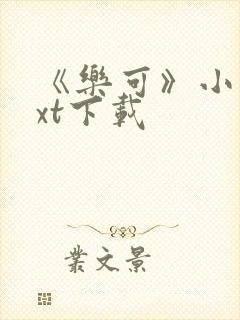 《樂可》小
xt下載
叢文景